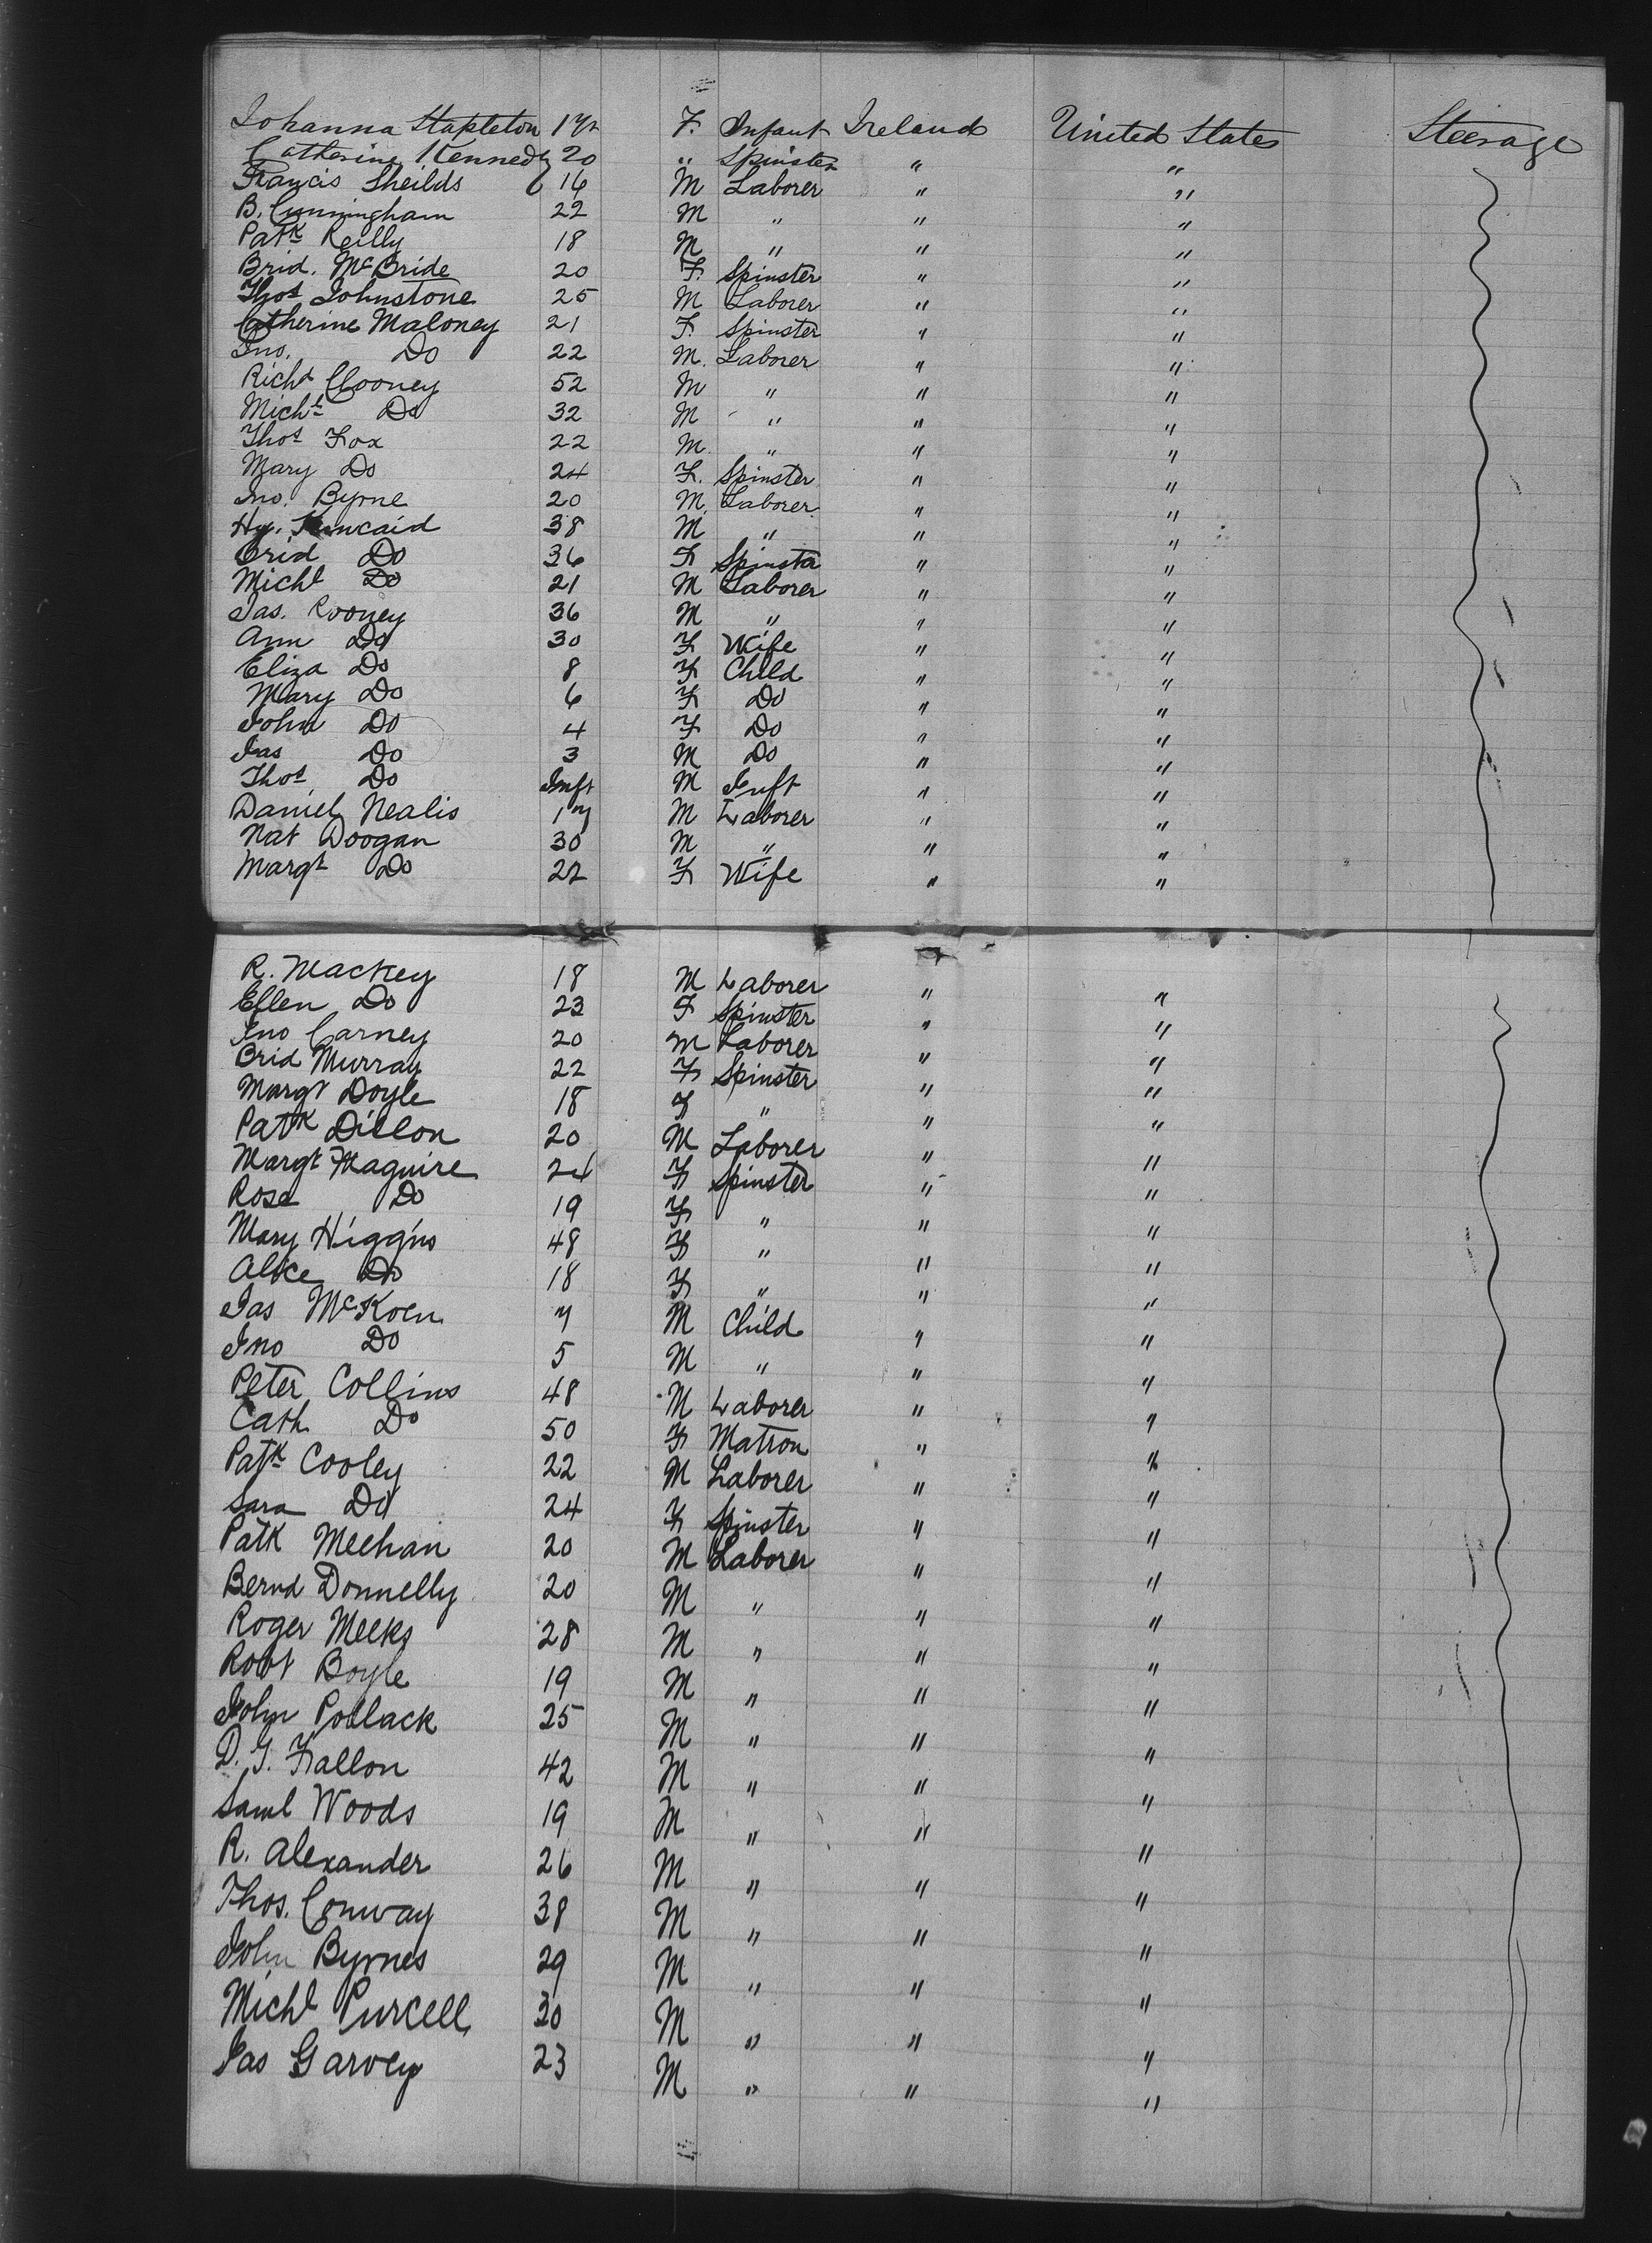 Johanna Stapleton 1 Yr F. Infant Ireland United States Steerage
Catherine Kennedy 20 " Spinster " "
Francis Sheilds 16 M Laborer " "
B. Cunningham 22 M " " "
Patk Reilly 18 M " " "
Brid. McBride 20 F. Spinster " "
Thos Johnstone 25 M Laborer " "
Catherine Maloney 21 F. Spinster " "
Jno. Do 22 M. Laborer " "
Richd Clooney 52 M " " "
Michl Do 32 M " " "
Thos Fox 22 M. " " "
Mary Do 24 F. Spinster " "
Jno. Byrne 20 M. Laborer " "
Hy. Kincaid 38 M " " "
Brid Do 36 F Spinsta " "
Michl Do 21 M Laborer " "
Jas. Rooney 36 M " " "
Ann Do 30 F Wife " "
Eliza Do 8 F Child " "
Mary Do 6 F Do " "
John Do 4 F Do " "
Jas Do 3 M Do " "
Thos Do Inft M Inft " "
Daniel Nealis 17 M Laborer " "
Nat Doogan 30 M " " "
Margt Do 22 F Wife " "
R. Mackey 18 M Laborer " "
Ellen Do 23 F Spinster " "
Jno Carney 20 M Laborer " "
Brid Murray 22 F Spinster " "
Margt Doyle 18 F " " "
Patk Dillon 20 M Laborer " "
Margt Maguire 24 F Spinster " "
Rose Do 19 F " " "
Mary Higgins 48 F " " "
Alice Do 18 F " " "
Jas McKoen 7 M Child " "
Jno Do 5 M " " "
Peter Collins 48 M Laborer " "
Cath Do 50 F Matron " "
Patk Cooley 22 M Laborer " "
Sara Do 24 F Spinster " "
Patk Meehan 20 M Laborer " "
Bernd Donnelly 20 M " " "
Roger Meeks 28 M " " "
Robt Boyle 19 M " " "
John Pollack 25 M " " "
D. J. Fallon 42 M " " "
Saml Woods 19 M " " "
R. Alexander 26 M " " "
Thos. Conway 38 M " " "
John Byrnes 29 M " " "
Michl Purcell 30 M " " "
Jas Garvey 23 M " " "